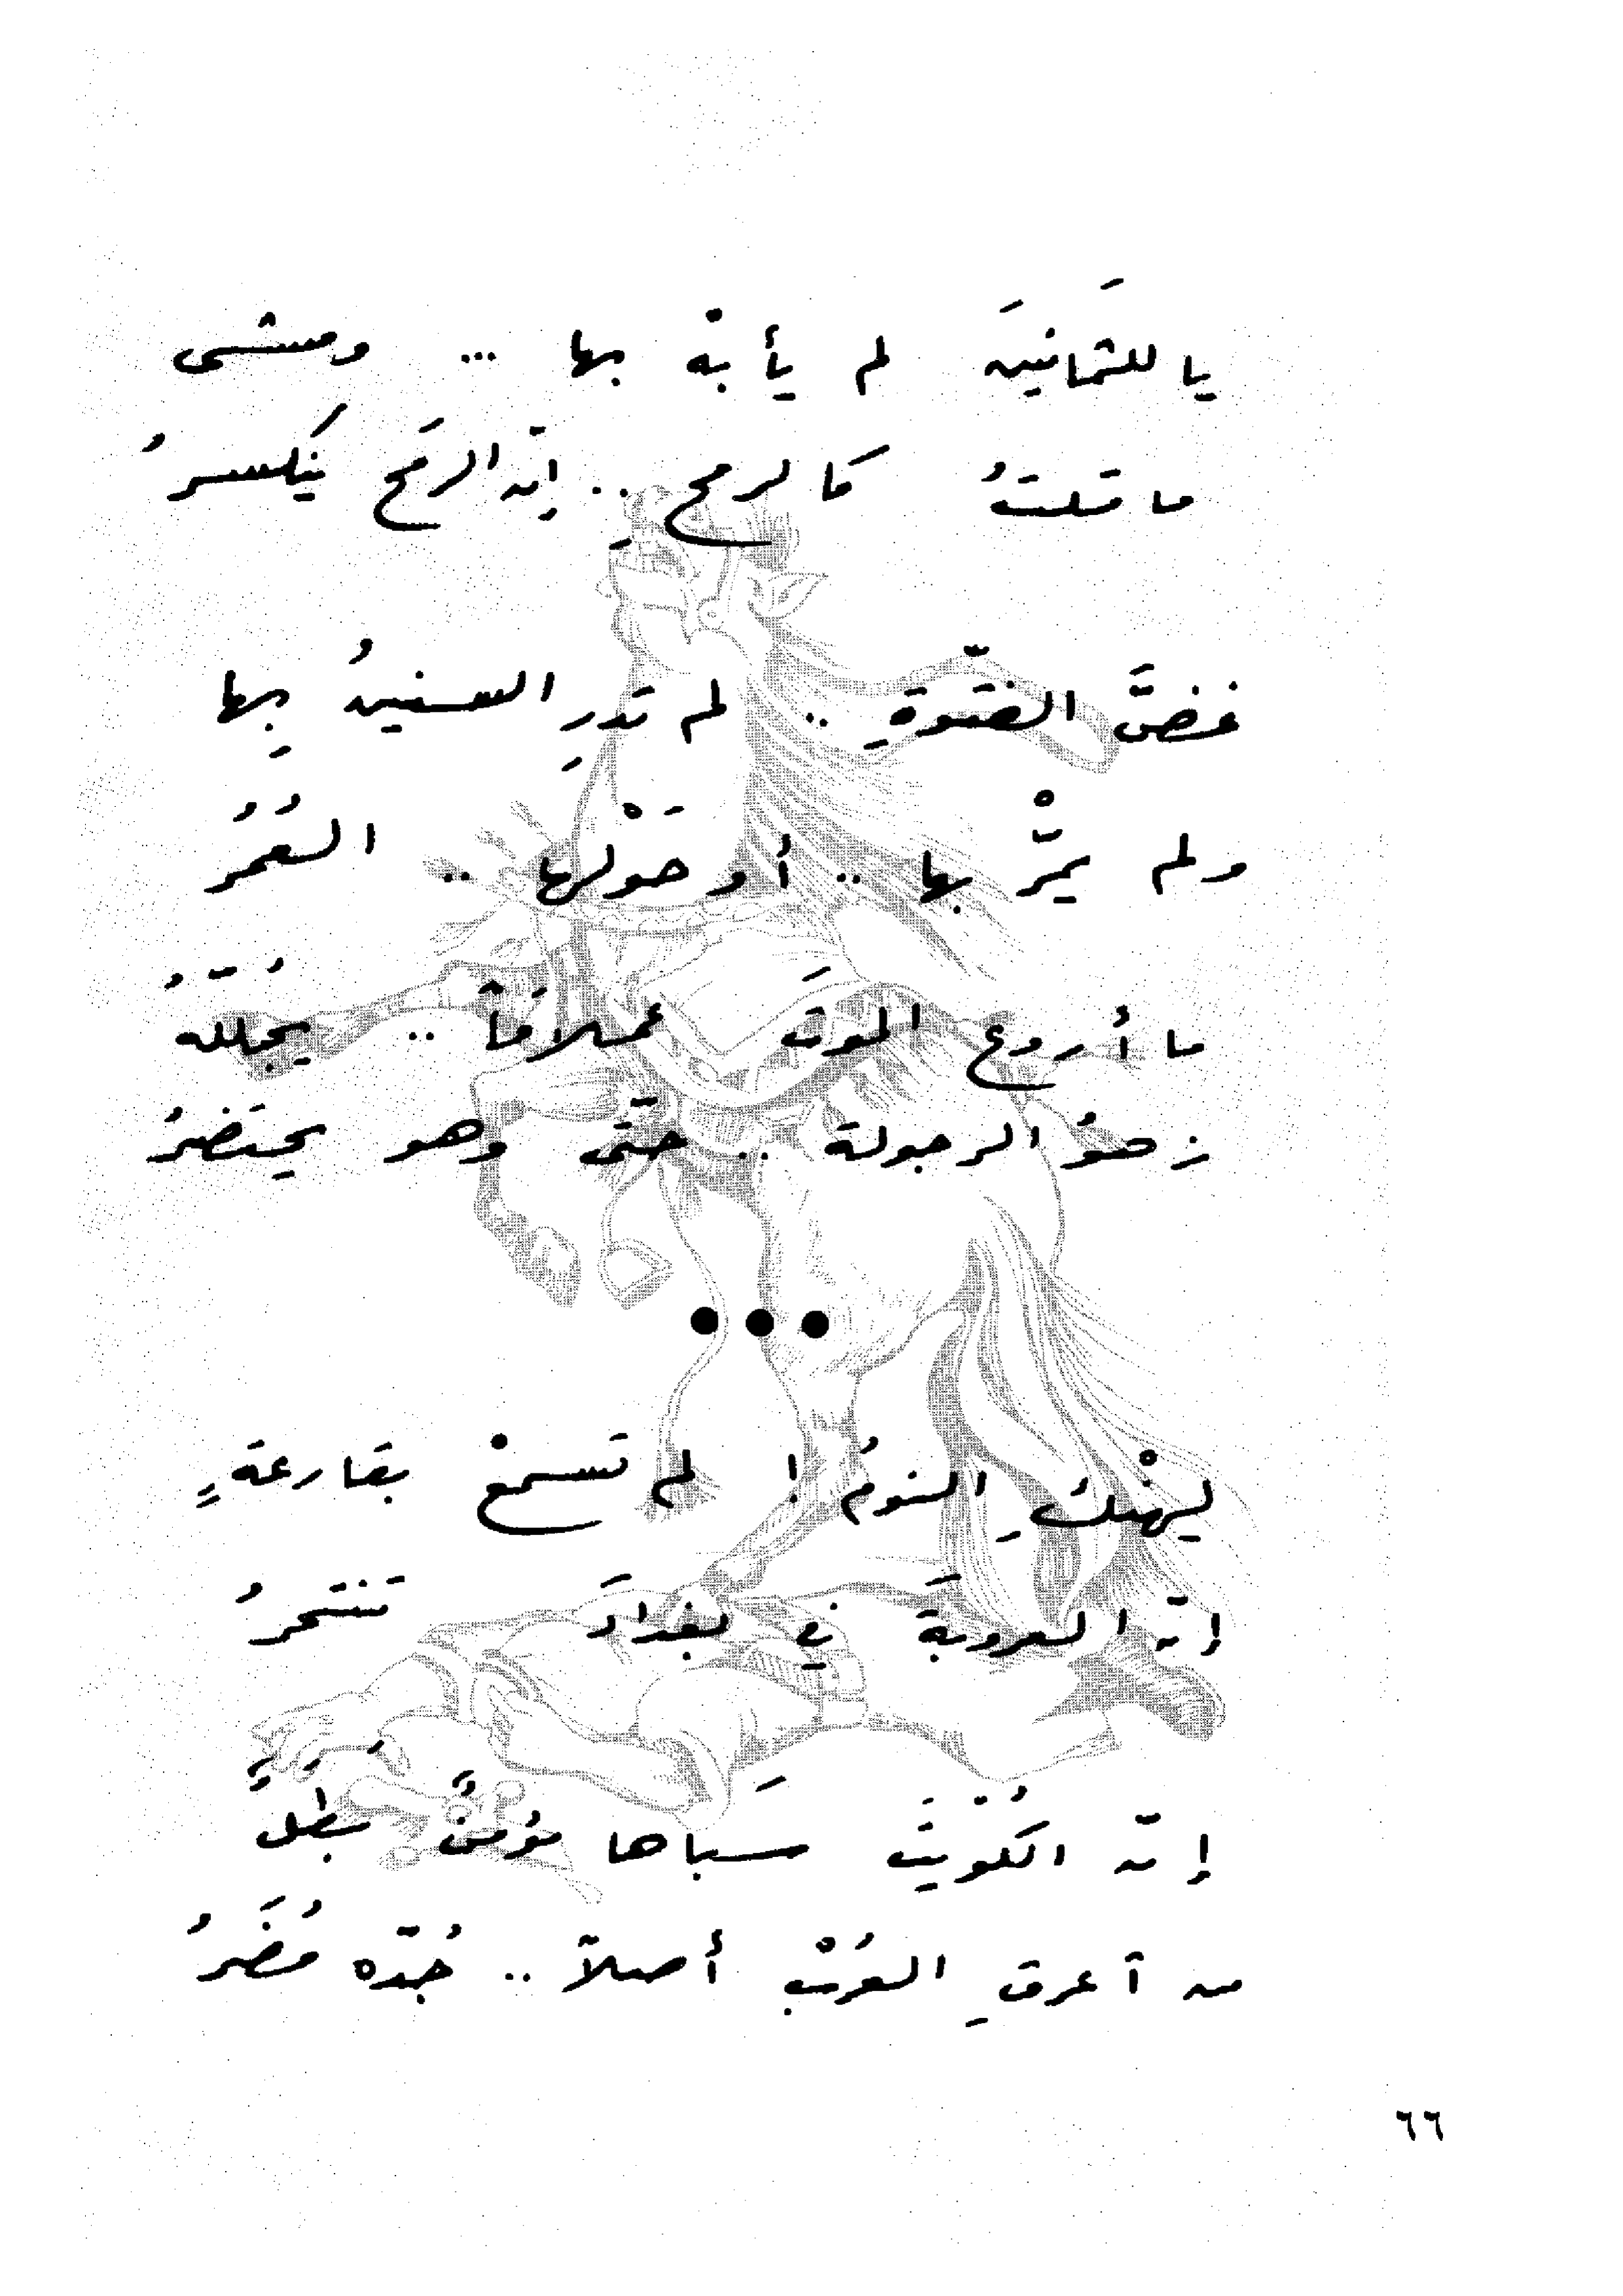 يا للثمانينَ لم يأبهْ بها ... ومشى
ما قلتُ كالرمحِ .. إنّ الرمحَ ينكسرُ
غضَّ الفتوّةِ .. لم تدرِ السنينُ بِها
ولم يمرّْ بها .. أو حَوْلها .. العُمُرُ
ما أروع الموتَ عملاقاً .. يُجلّلهُ
زهوُ الرجولة .. حتّى وهو يحتضرُ
•••
ليهْنكِ النومُ ! لم تسمعْ بقارعةٍ
إنّ العروبةَ في بغدادَ تنتحرُ
إنّ الكُوَيْتَ سباها مؤمنٌ بطلٌ
من أعرقِ العُرْبِ أصلاً .. جُدّه مُضَرُ
٦٦